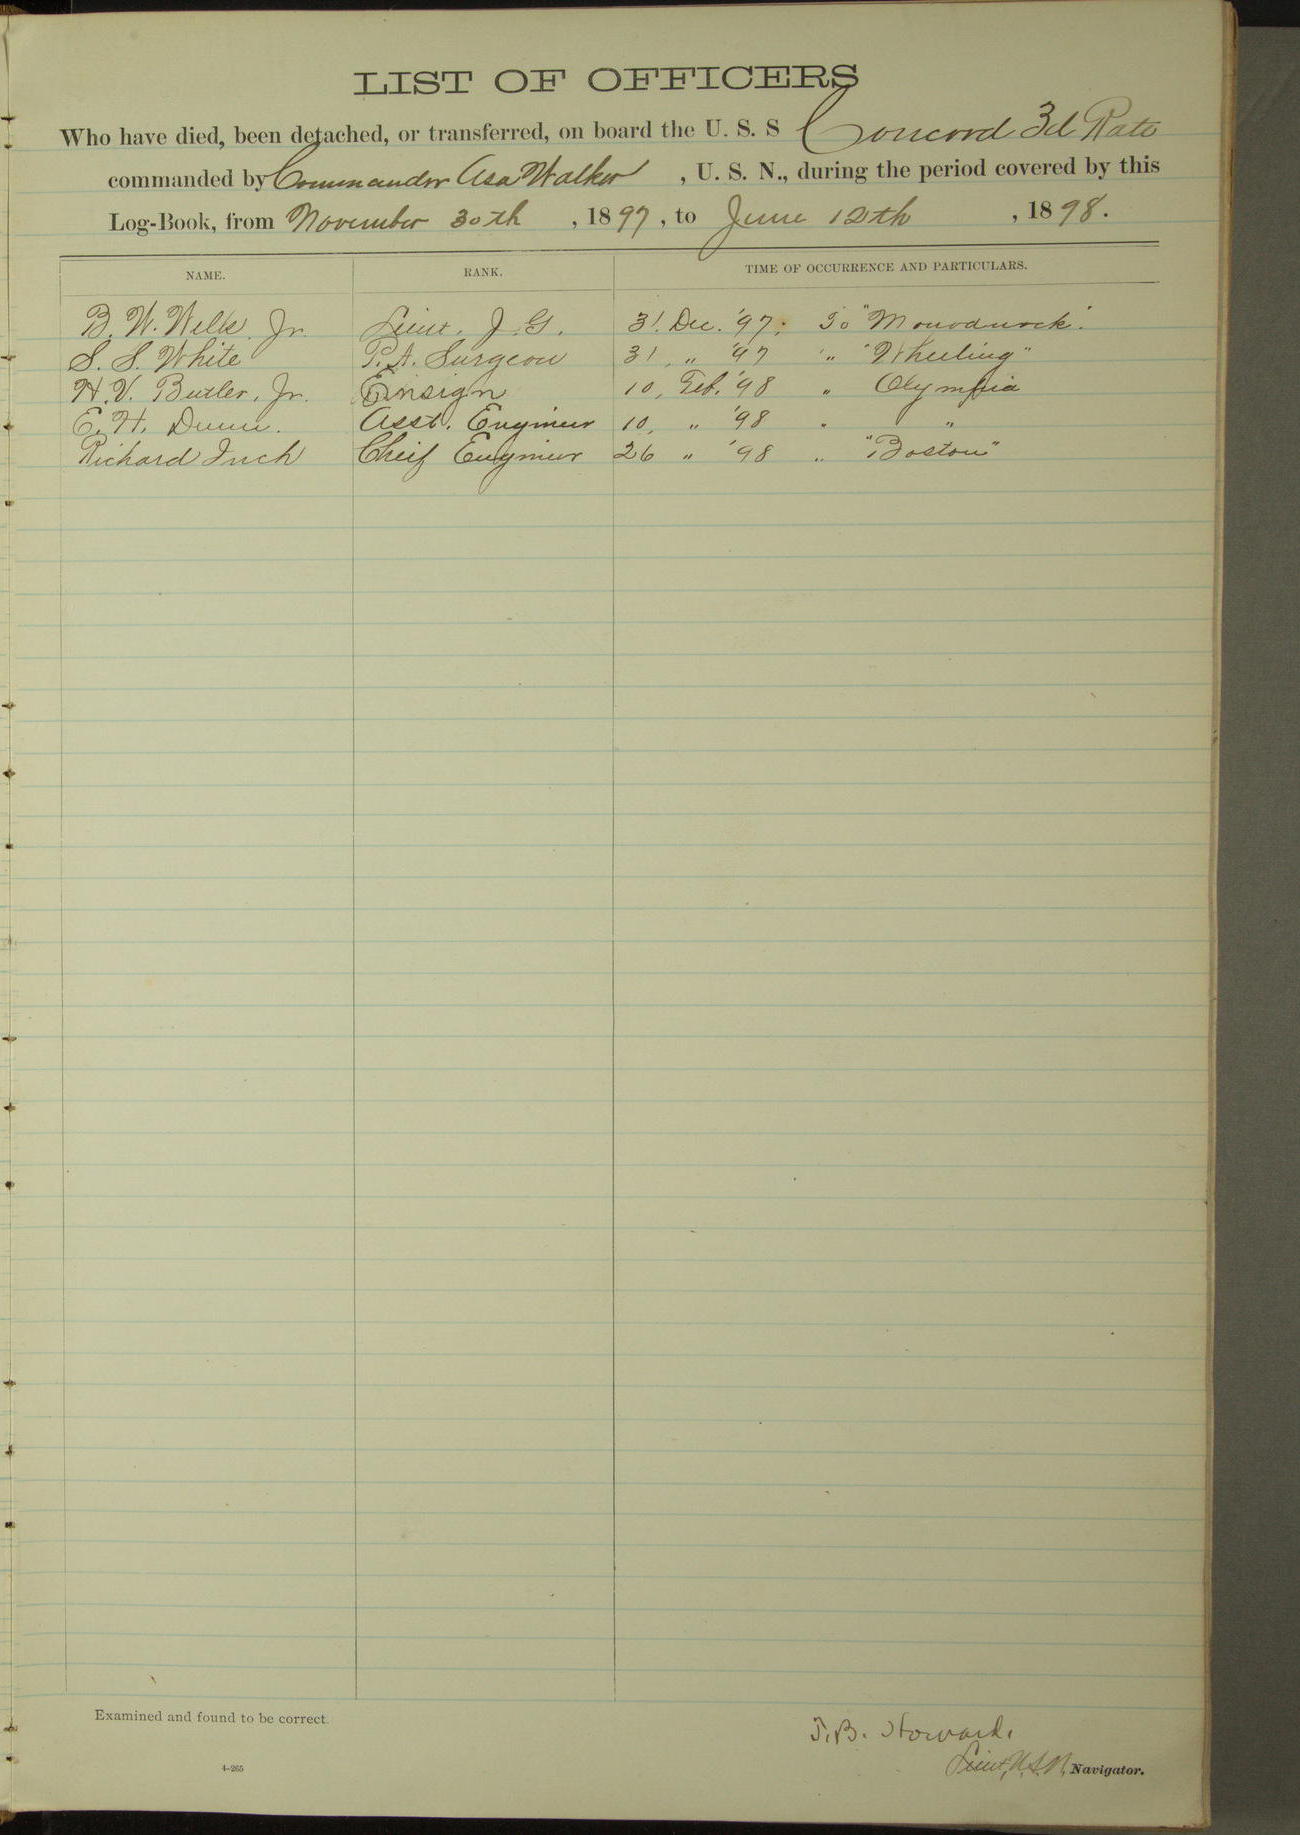 LIST OF OFFICERS
Who have died, been detached, or transferred, on board the U. S. S Concord 3d Rate
commanded by Commander Asa Walker, U. S. N., during the period covered by this
Log-Book, from November 30th, 1897, to June 12th, 1898.
NAME. RANK. TIME OF OCCURRENCE AND PARTICULARS.
B. W. Wells, Jr. Lieut. J. G. 31. Dec. '97. To "Monodnock".
S. S. White P. A. Surgeon 31, " '97 " "Wheeling"
H. V. Butler, Jr. Ensign 10, Feb. '98 " Olympia
E. H. Dunn. Asst. Engineer 10, " '98 " "
Richard Inch Cheif Engineer 26 " '98 " "Boston"
Examined and found to be correct.
T. B. Howard.
Lieut, U.S.N, Navigator.
4-265